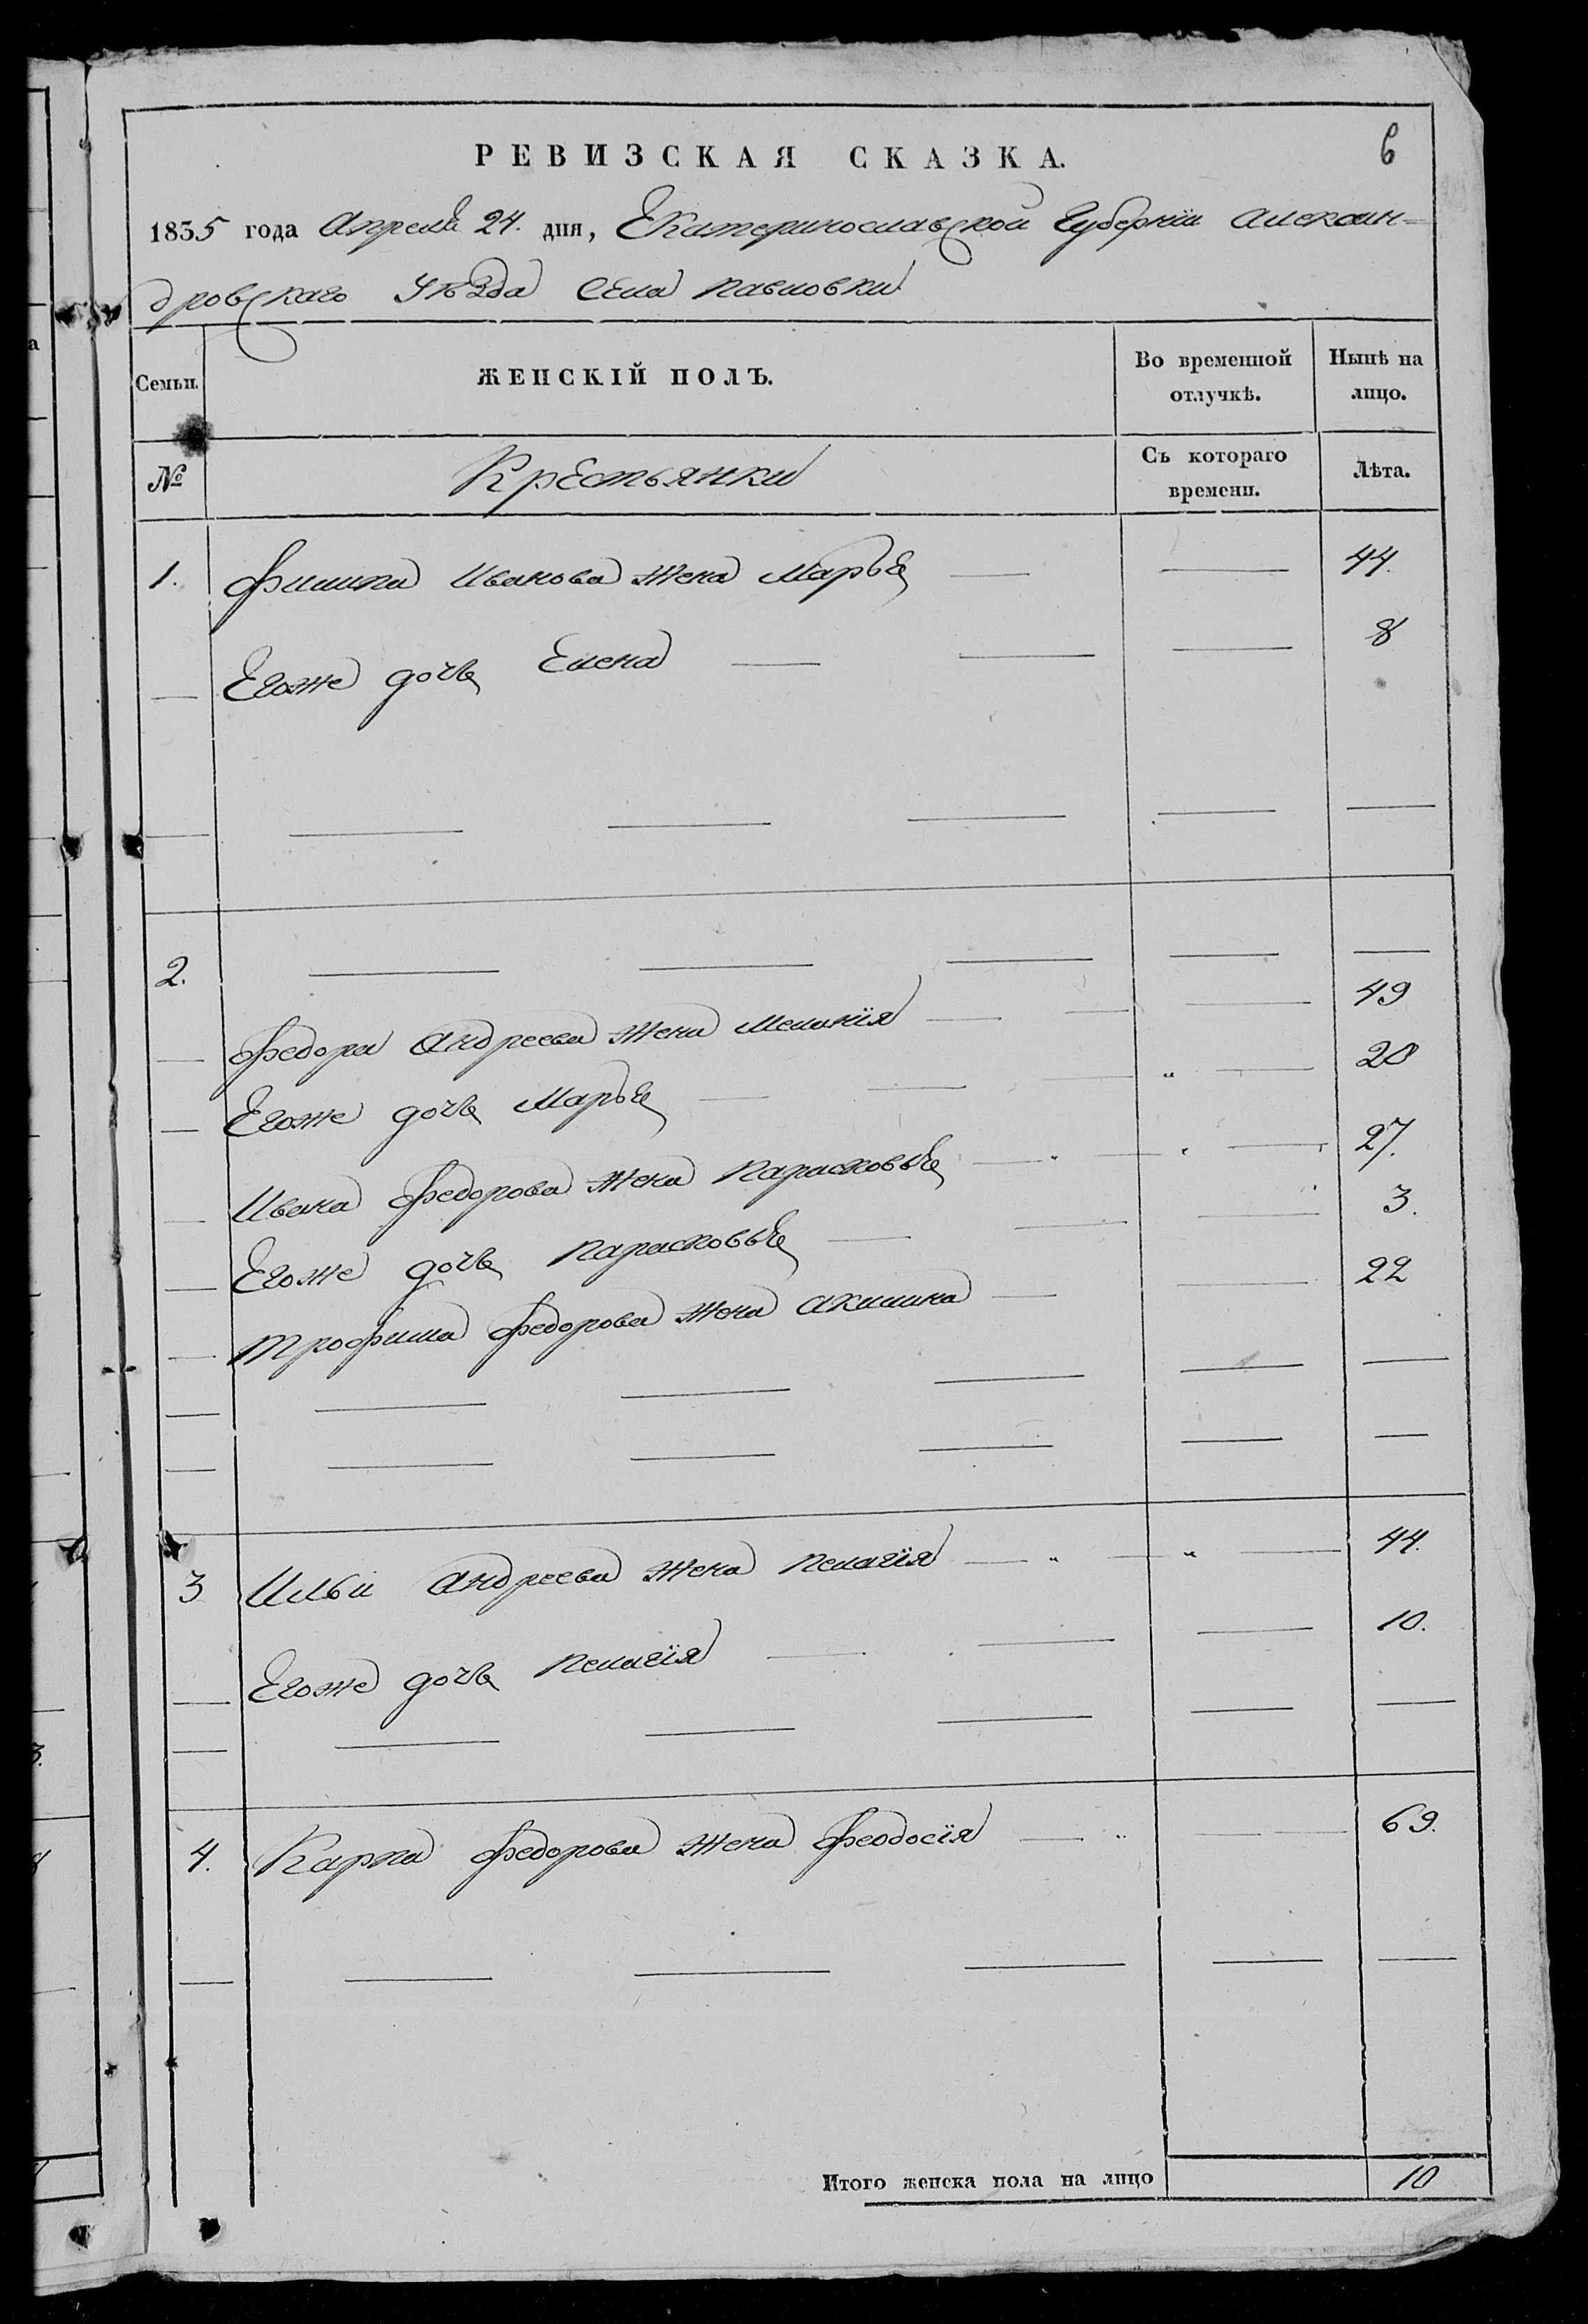 6
РЕВИЗСКАЯ СКАЗКА.
1835 года Апреля 24. дня, Екатеринославской Губернїи Алексан=
дровскаго Уѣзда Села Павловки
Семьи. ЖЕНСКІЙ ПОЛЪ. Во временной отлучкѣ. Нынѣ на лицо.
№ Крестьянки Съ котораго времени. Лѣта.
1. Филипа Иванова жена Марья — — 44.
— Егоже дочь Елена — — — 8
— — — — — —
2. — — — — —
— Федора Андреева жена Меланїя — — — 49
— Егоже дочь Марья — — — „ — 20
— Ивана Федорова жена Парасковья — „ — „ — 27.
— Егоже дочь Парасковья — — — 3.
— Трофима Федорова жена Акилина — — 22
— — — — — —
— — — — — —
3 Ильи Андреева жена Пелагїя — „ — „ — 44.
— Егоже дочь Пелагїя — — — 10.
— — — — — —
4. Карпа Федорова жена Феодосїя — „ — — 69.
— — — — — —
Итого женска пола на лицо 10